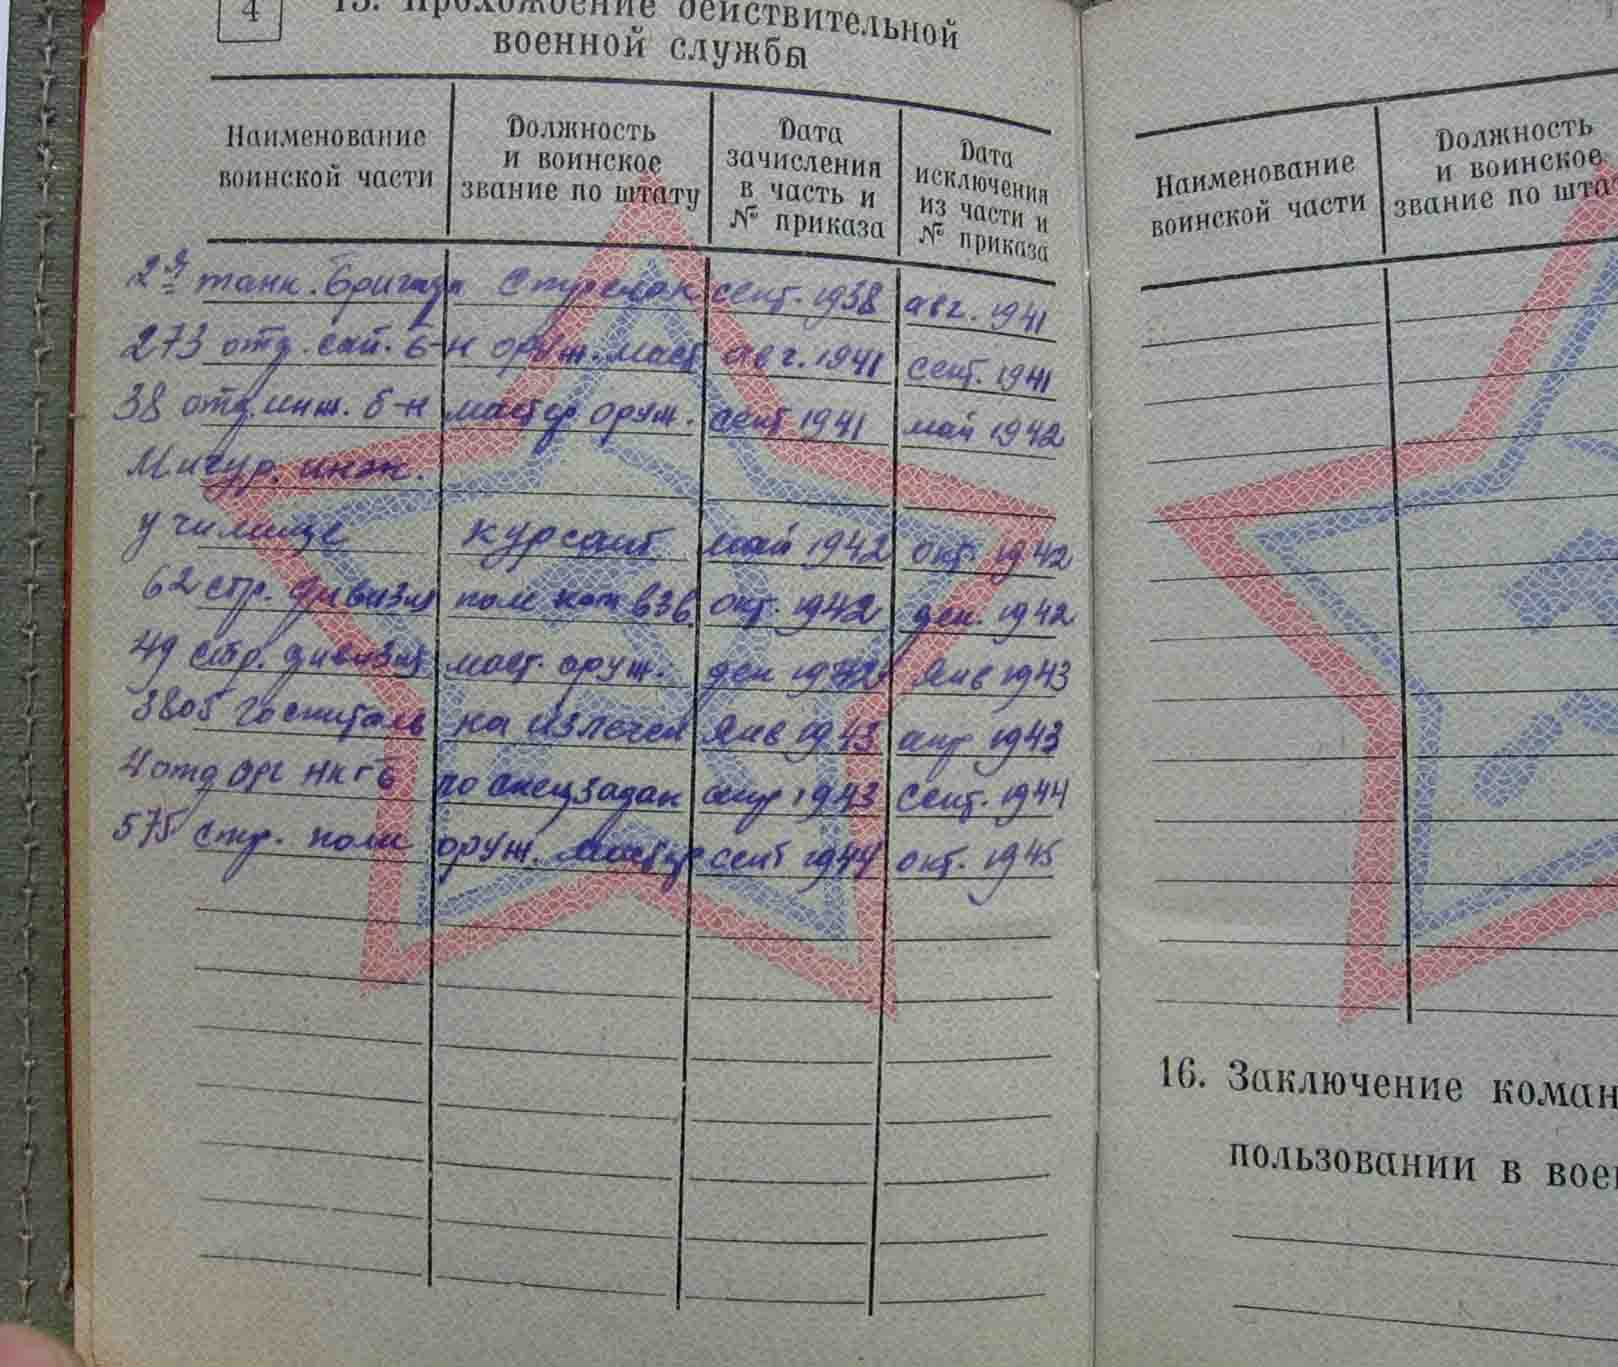 4
15. Прохождение действительной
военной службы
Наименование воинской части
Должность и воинское звание по штату
Дата зачисления в часть и № приказа
Дата исключения из части и № приказа
2я танк. бригада стрелок сент. 1938 авг. 1941
273 отд. сап. б-н оруж. маст авг. 1941 сент. 1941
38 отд. инж. б-н мастер оруж. сент 1941 май 1942
Мичур. инж.
училище курсант май 1942 окт. 1942
62 стр. дивизия пом ком взв. окт. 1942 дек. 1942
49 стр. дивизия маст. оруж. дек 1942 Янв 1943
3805 госпиталь на излечен Янв 1943 апр 1943
4 отд орг НКГБ по спецзадан апр 1943 сент. 1944
575 стр. полк оруж. мастер сент 1944 окт. 1945
Наименование воинской части
Должность и воинское звание по шта
16. Заключение коман
пользовании в вое